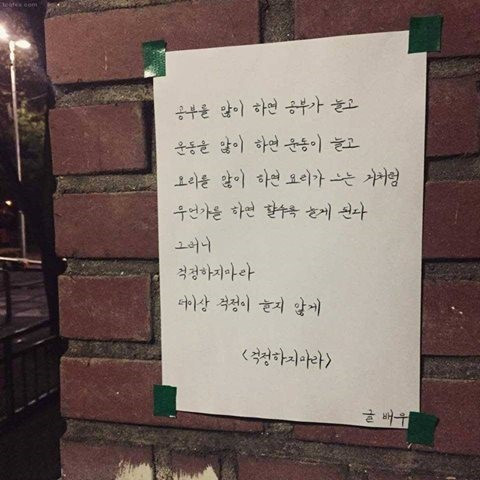 공부를 많이 하면 공부가 늘고
운동을 많이 하면 운동이 늘고
요리를 많이 하면 요리가 느는 거처럼
무언가를 하면 할수록 늘게 된다
그러니
걱정하지마라
더이상 걱정이 늘지 않게
<걱정하지마라>
글 배우